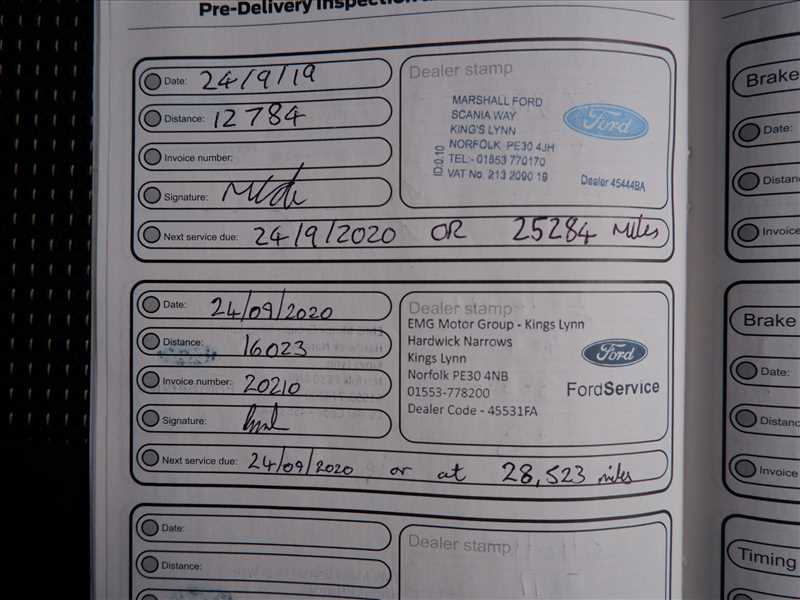 Pre-Delivery Inspection
Date: 24/9/19
Distance: 12784
Invoice number:
Signature:
Next service due: 24/9/2020 OR 25284 Miles
Dealer stamp
MARSHALL FORD
SCANIA WAY
KING'S LYNN
NORFOLK PE30 4JH
TEL:- 01553 770170
VAT No. 213 2090 19
ID.0.10
Ford
Dealer 45444BA
Date: 24/09/2020
Distance: 16023
Invoice number: 20210
Signature:
Next service due: 24/09/2020 or at 28,523 miles
Dealer stamp
EMG Motor Group - Kings Lynn
Hardwick Narrows
Kings Lynn
Norfolk PE30 4NB
01553-778200
Dealer Code - 45531FA
Ford
FordService
Date:
Distance:
Dealer stamp
Brake
Date:
Distanc
Invoice
Brake
Date:
Distanc
Invoice
Timing